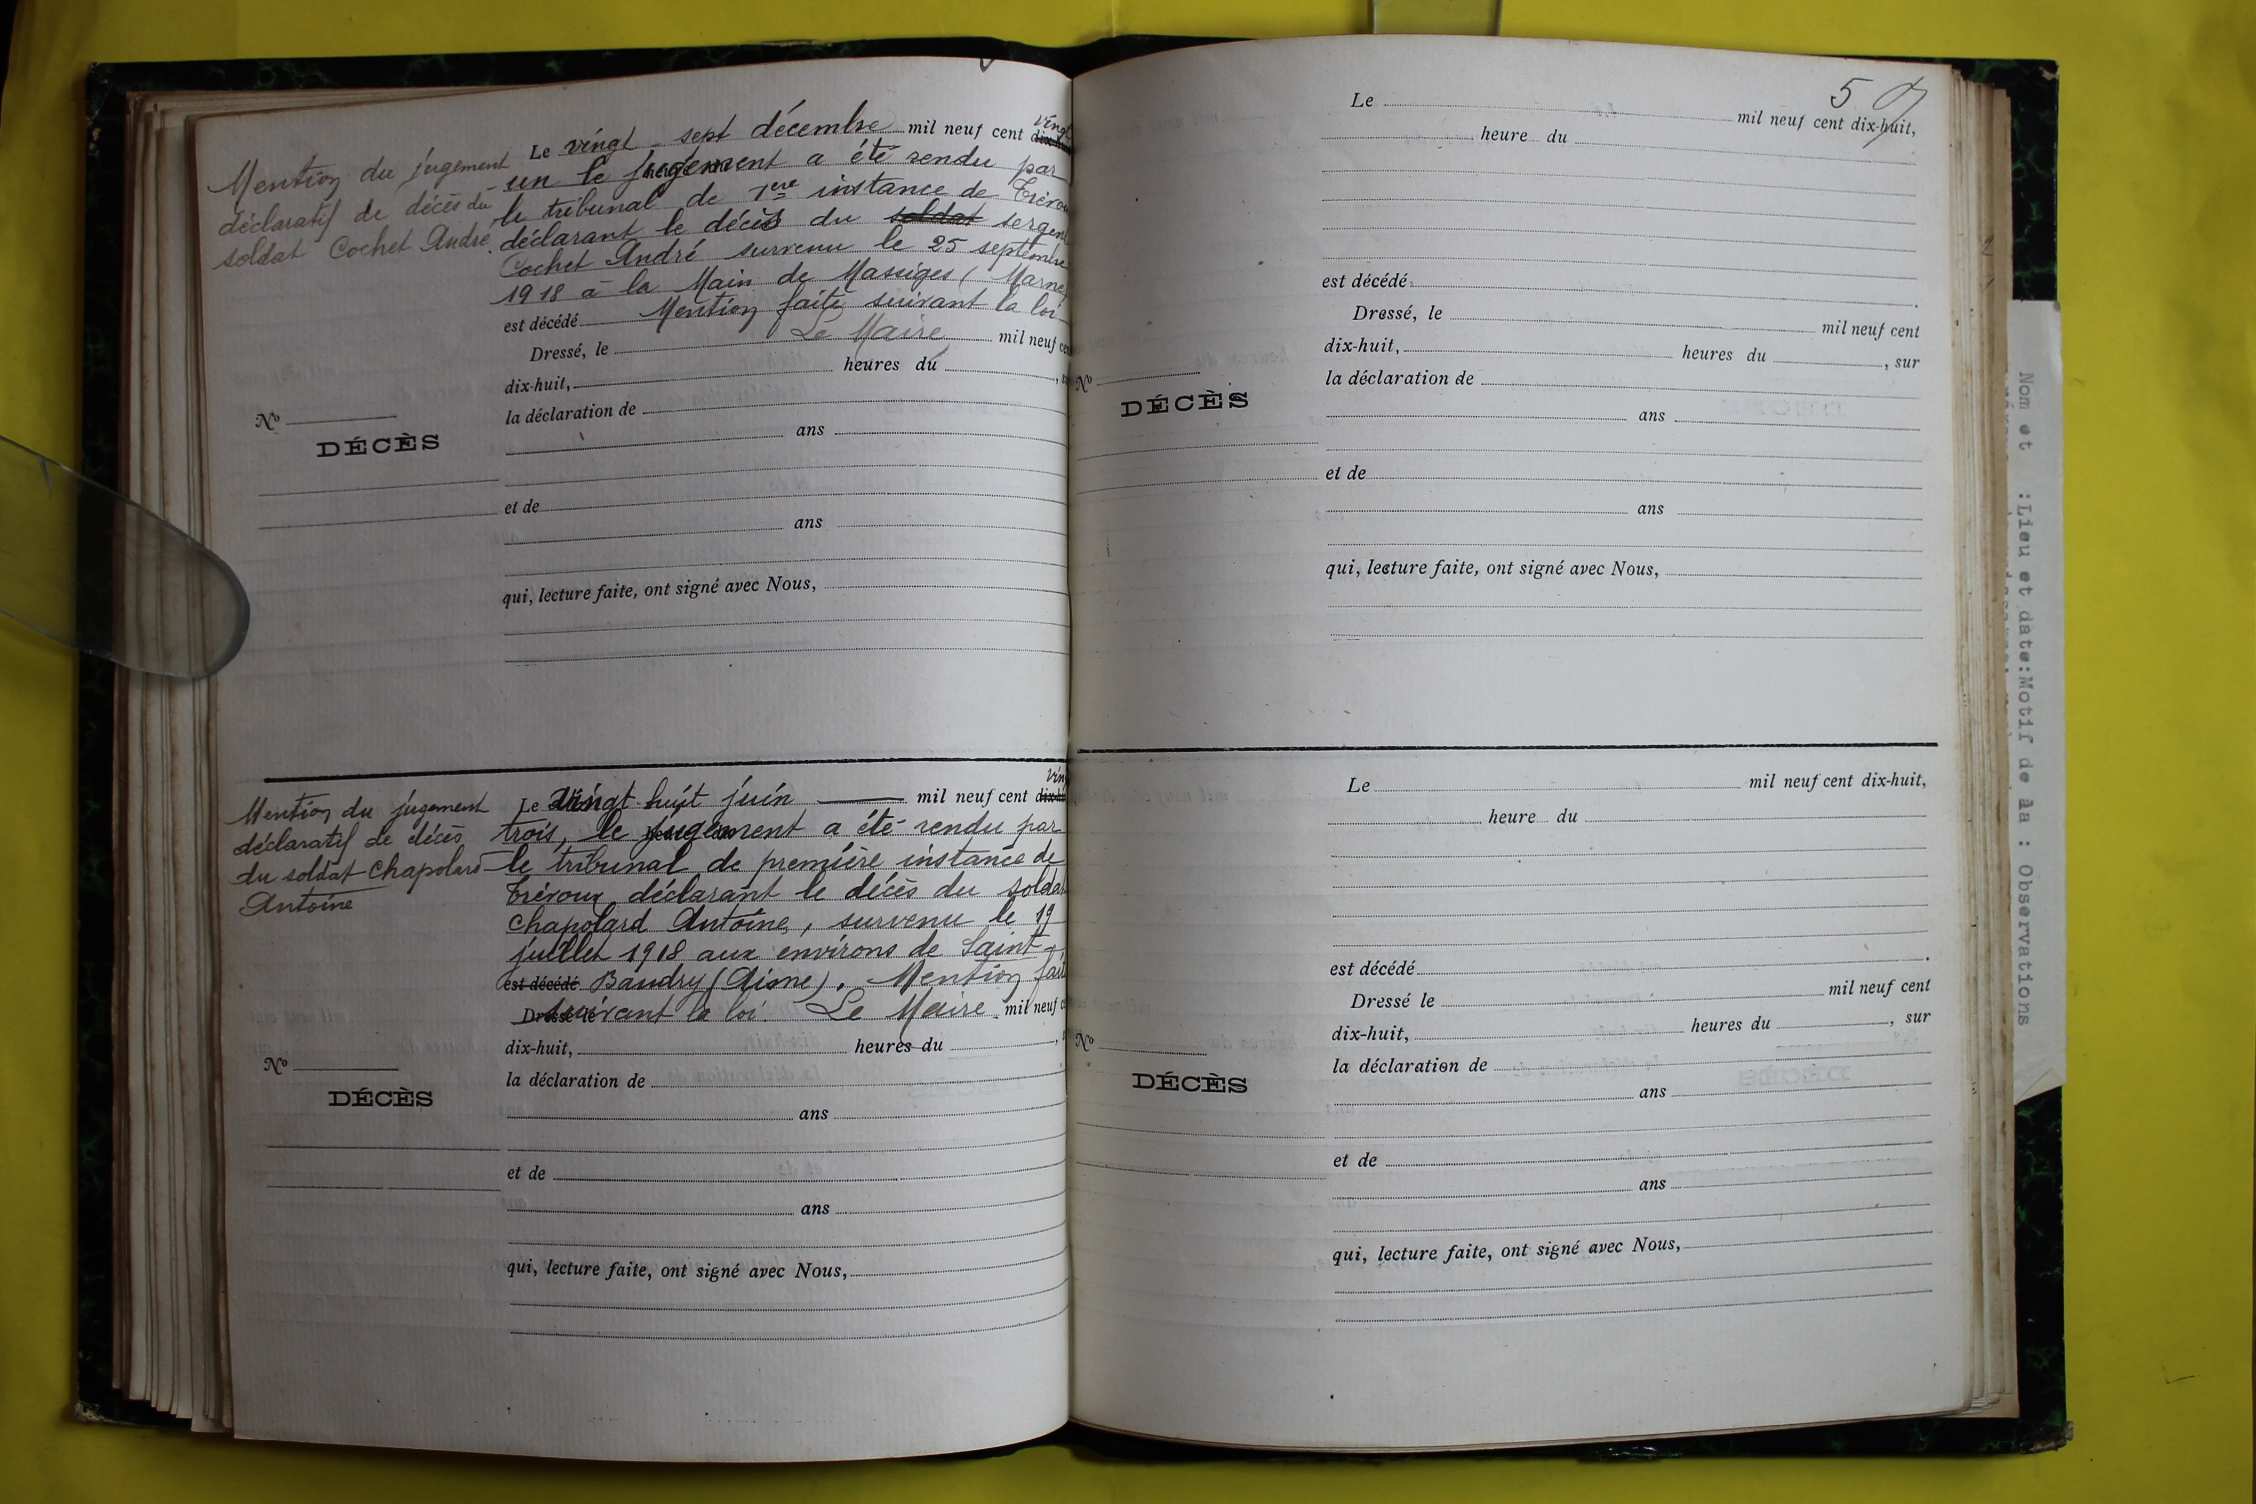 Mention du jugement
déclaratif de décès du
soldat Cochet André.
Le vingt-sept décembre mil neuf cent dix-huit vingt
un le jugement a été rendu par
le tribunal de 1ere instance de Trévoux
déclarant le décès du soldat sergent
Cochet André survenu le 25 septembre
1918 à la Main de Massiges (Marne)
est décédé Mention faite suivant la loi
Le Maire
Dressé, le mil neuf cent
dix-huit, heures du
la déclaration de
ans
Nº
DÉCÈS
et de
ans
qui, lecture faite, ont signé avec Nous,
Mention du jugement
déclaratif de décès
du soldat Chapolard
Antoine
Le vingt-huit juin mil neuf cent dix-huit vingt
trois, le jugement a été rendu par
le tribunal de première instance de
Trévoux déclarant le décès du soldat
Chapolard Antoine, survenu le 19
juillet 1918 aux environs de Saint-
est décédé Bandry (Aisne). Mention faite
Dressé le suivant la loi. Le Maire mil neuf cent
dix-huit, heures du
la déclaration de
ans
Nº
DÉCÈS
et de
ans
qui, lecture faite, ont signé avec Nous,
5
Le mil neuf cent dix-huit,
heure du
est décédé
Dressé, le mil neuf cent
dix-huit, heures du , sur
la déclaration de
ans
Nº
DÉCÈS
et de
ans
qui, lecture faite, ont signé avec Nous,
Le mil neuf cent dix-huit,
heure du
est décédé
Dressé le mil neuf cent
dix-huit, heures du , sur
la déclaration de
ans
Nº
DÉCÈS
et de
ans
qui, lecture faite, ont signé avec Nous,
Nom et : Lieu et date:Motif de la : Observations